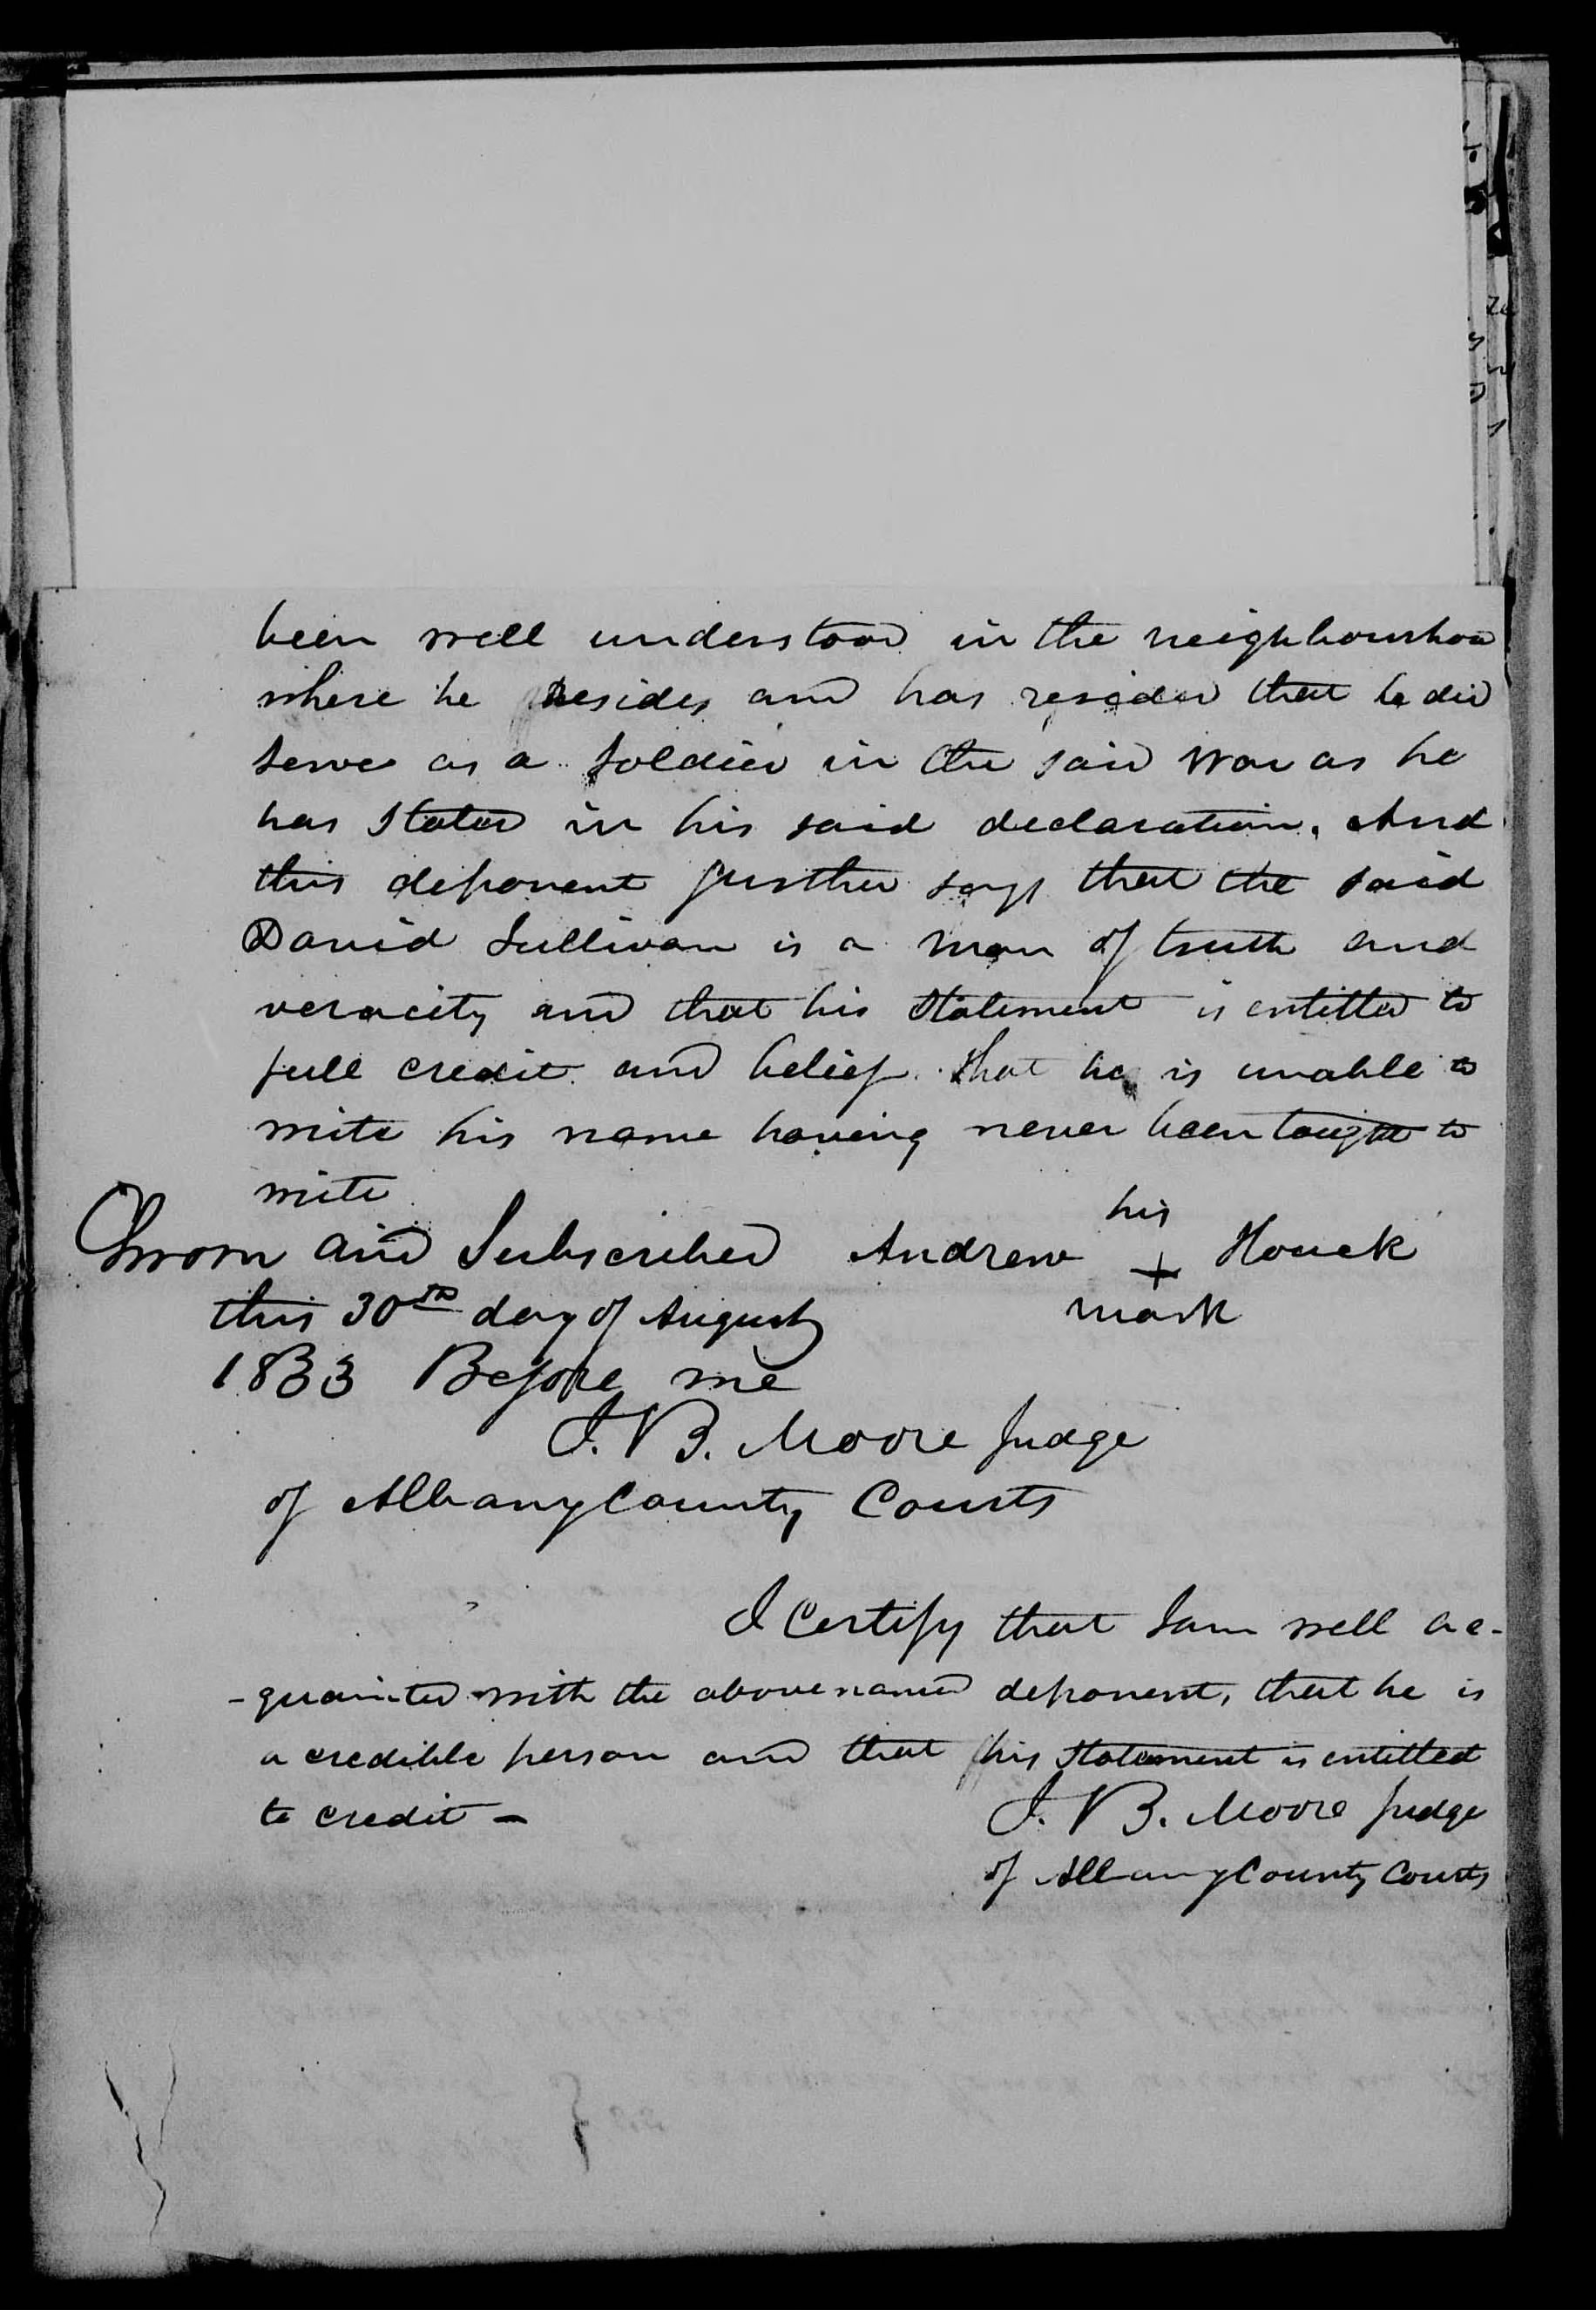 been well understood in the neighbourhood
where he resides and has resided that he did
serve as a soldier in the said War as he
has stated in his said declaration. And
this deponent further says that the said
David Sullivan is a man of truth and
veracity and that his statement is entitled to
full credit and belief. that he is unable to
write his name having never been taught to
write
Sworn and Subscribed Andrew his + mark Houck
this 30th day of August
1833 Before me
J. B. Moore Judge
of Albany County Courts
I Certify that I am well ac-
-quainted with the above named deponent, that he is
a credible person and that his statement is entitled
to credit -
J. B. Moore Judge
of Albany County Courts